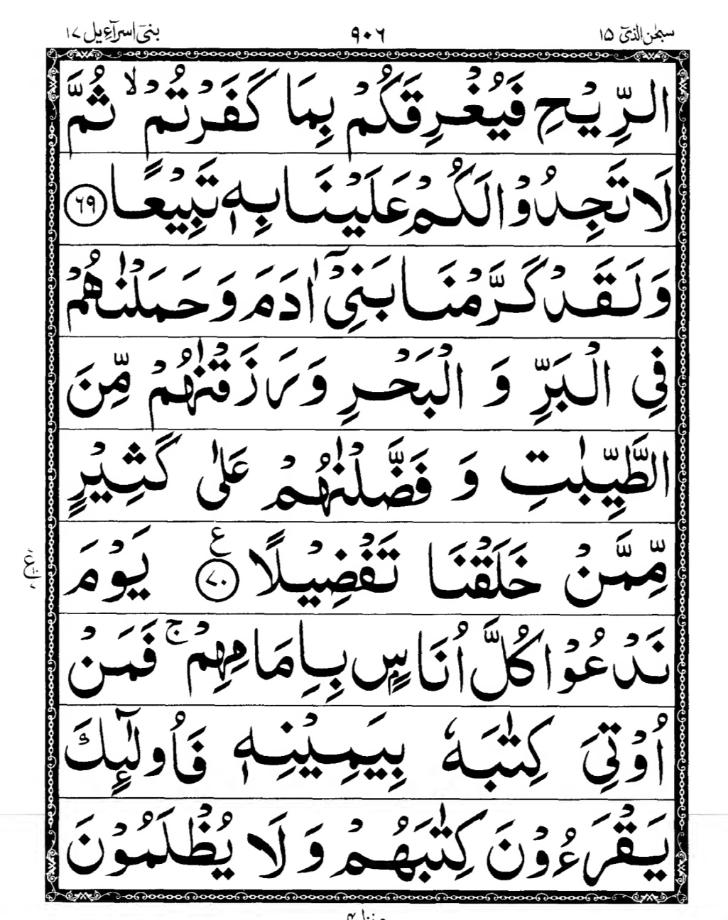 سبحٰن الذیٓ ١٥ ٩٠٦ بنیٓ اسرآءیل ١٧
الرِّیْحِ فَیُغْرِقَكُمْ بِمَا كَفَرْتُمْ ۙ ثُمَّ
لَا تَجِدُوْا لَكُمْ عَلَیْنَا بِهٖ تَبِیْعًا ﴿٦٩﴾
وَلَقَدْ كَرَّمْنَا بَنِیْۤ اٰدَمَ وَحَمَلْنٰهُمْ
فِی الْبَرِّ وَ الْبَحْرِ وَرَزَقْنٰهُمْ مِّنَ
الطَّیِّبٰتِ وَ فَضَّلْنٰهُمْ عَلٰی كَثِیْرٍ
مِّمَّنْ خَلَقْنَا تَفْضِیْلًا ﴿٧٠﴾ ع یَوْمَ
نَدْعُوْا كُلَّ اُنَاسٍۭ بِاِمَامِهِمْ ۚ فَمَنْ
اُوْتِیَ كِتٰبَهٗ بِیَمِیْنِهٖ فَاُولٰٓىِٕكَ
یَقْرَءُوْنَ كِتٰبَهُمْ وَ لَا یُظْلَمُوْنَ